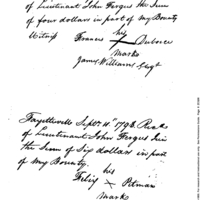 of Lieutenant John Fergus the Sum
of four dollars in part of my Bounty
his
Witness Frances X Delvoice
Mark
James Williams Sergt
Fayetteville Sept 11th 1798 Recd
of Lieutenant John Fergus
the Sum of Six dollars in part
of my Bounty.
his
X Pitman
Mark